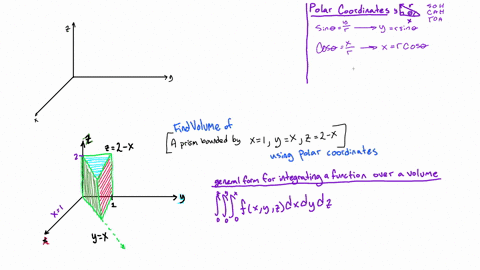 Polar Coordinates
y r
θ
x
SOH
CAH
TOA
sinθ = y/r → y = rsinθ
Cosθ = x/r → x = r Cosθ
z
y
x
Find Volume of
[A prism bounded by x=1, y=x, z=2-x]
using polar coordinates
general form for integrating a function over a volume
∫∫∫ f(x,y,z)dxdydz
z
z=2-x
2
1
y
x=1
x
y=x